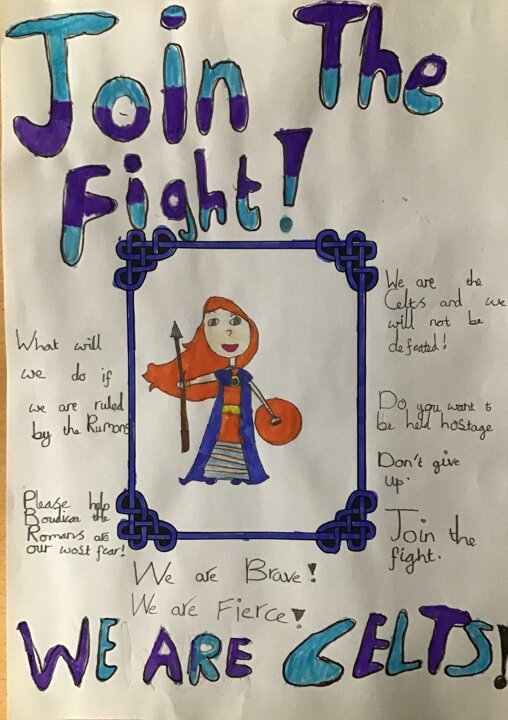 Join The
Fight!
What will
we do if
we are ruled
by the Rumons
Please help
Boudica the
Romans are
our wost fear!
We are the
Celts and we
will not be
defeated!
Do you want to
be held hostage
Don't give
up.
Join the
fight.
We are Brave!
We are Fierce!
WE ARE CELTS!